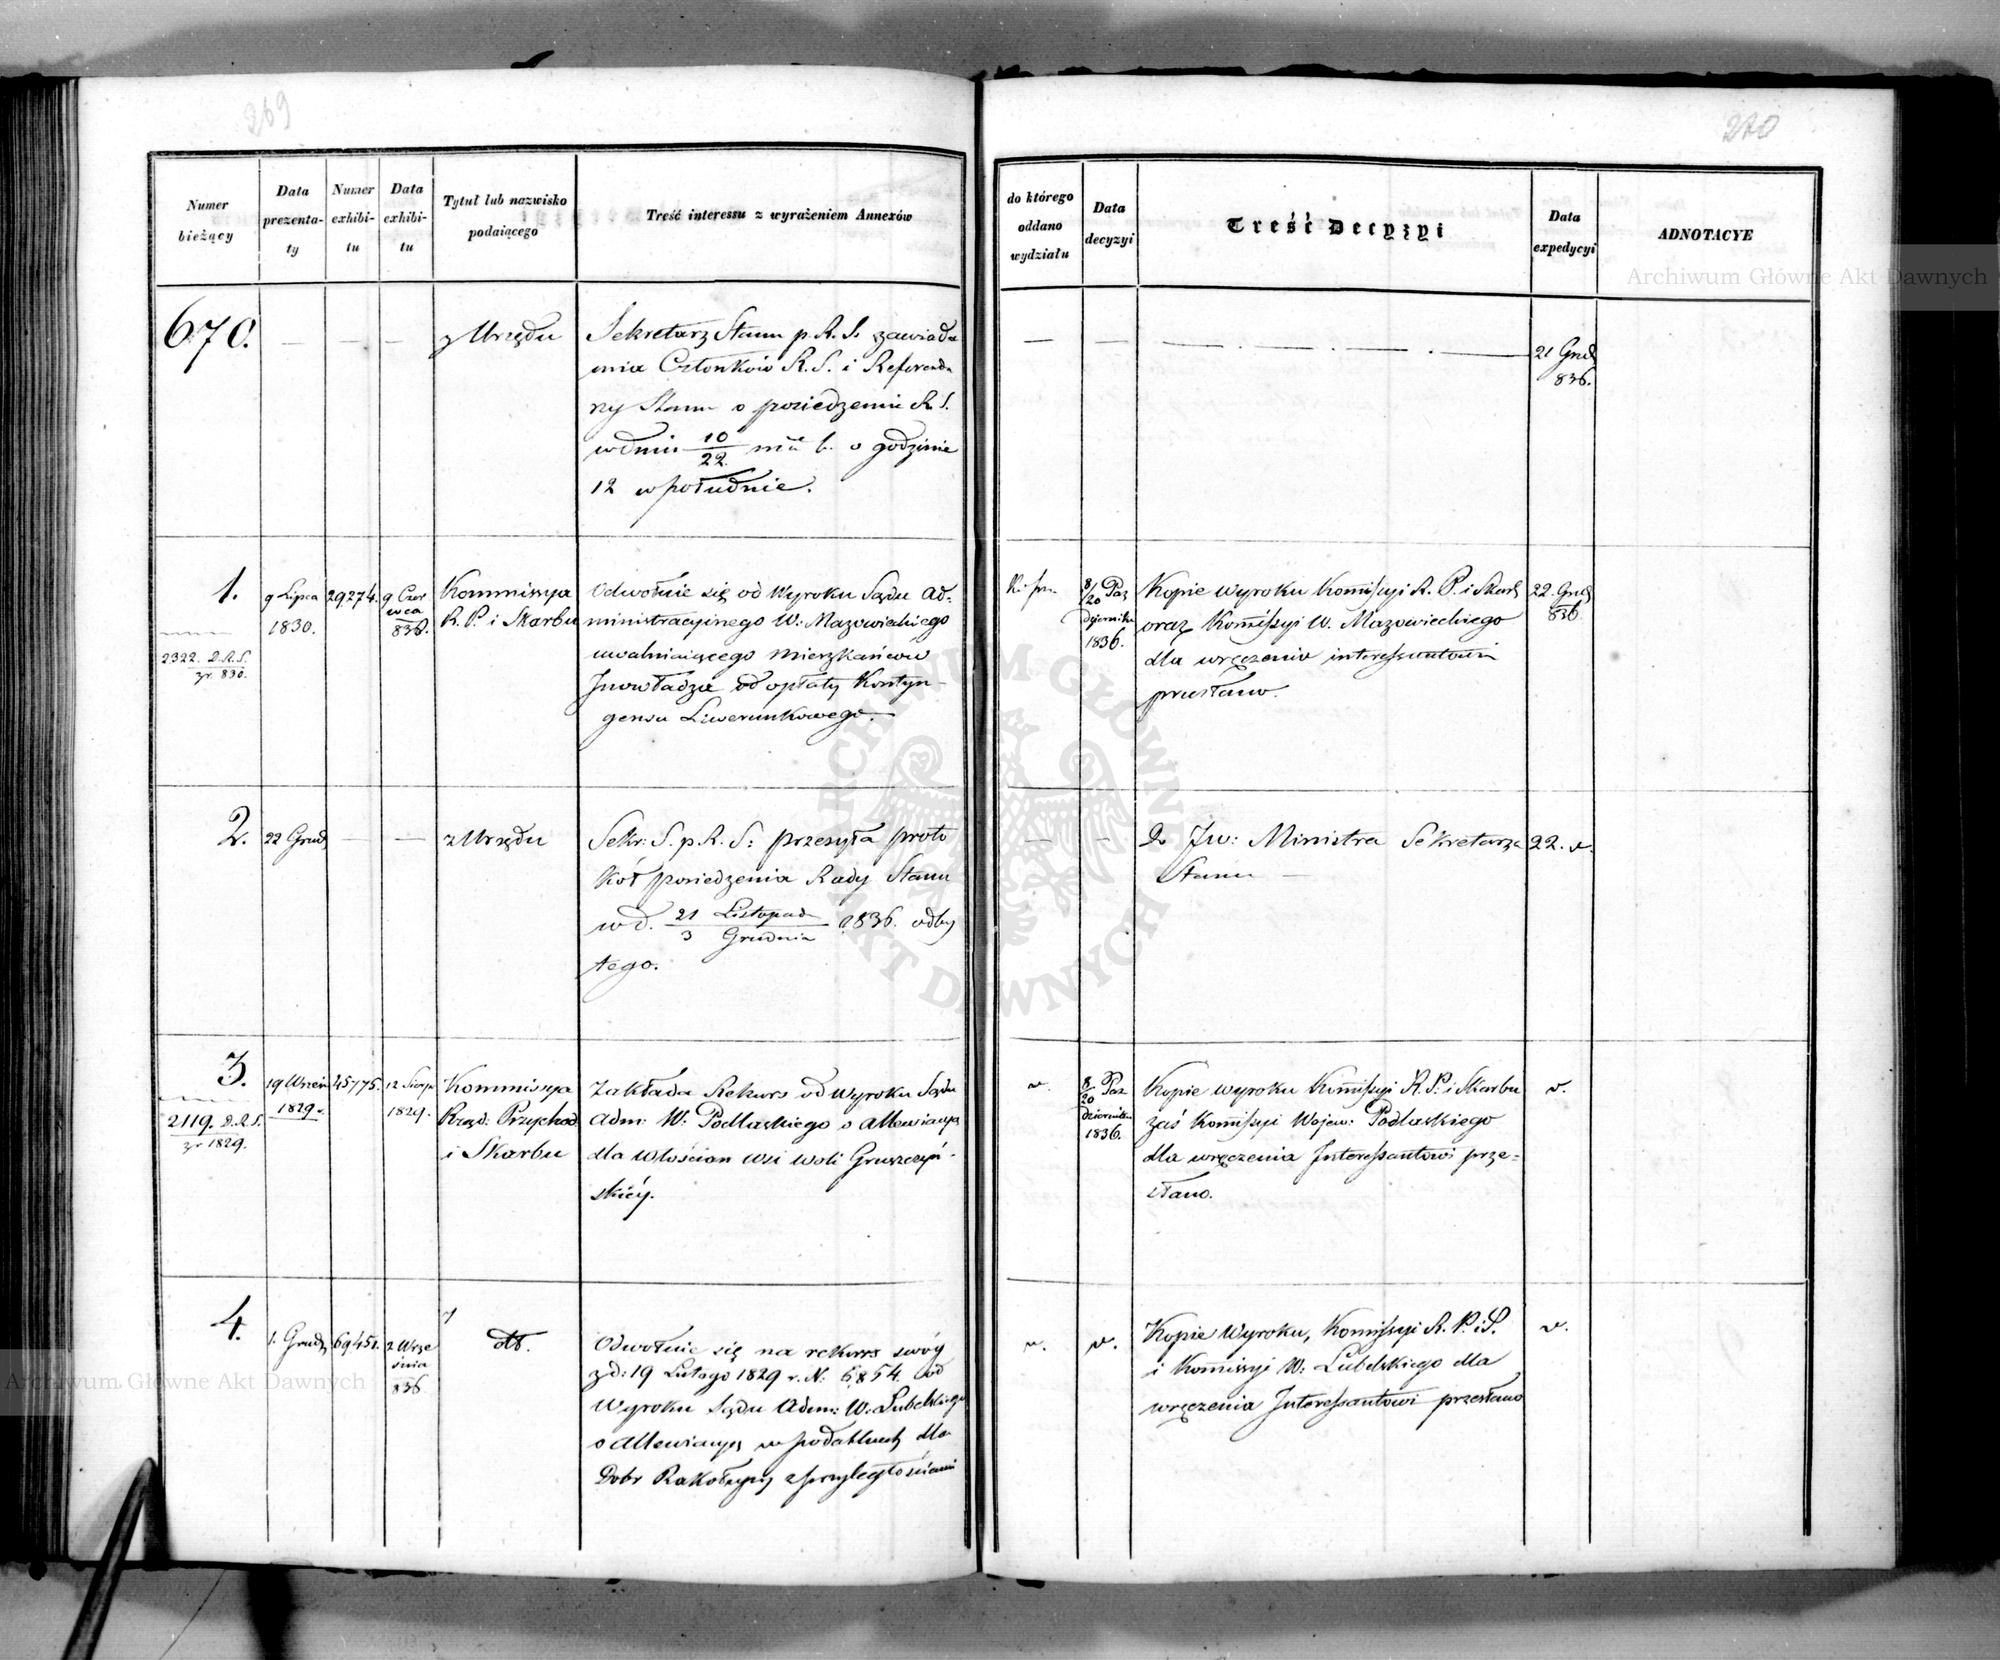 269
Numer
bieżący
Data
prezenta-
ty
Numer
exhibi-
tu
Data
exhibi-
tu
Tytuł lub nazwisko
podaiącego
Treść interessu z wyrażeniem Annexów
670.
z Urzędu
Sekretarz Stanu p. R. S. zawiada
mia Członków R. S. i Referenda
rzy Stanu o posiedzeniu R. S.
w dniu 10/22 m. b. o godzinie
12 w południe.
1.
2322. D.R.S.
z r. 830.
9 Lipca
1830.
29274.
9 Czer
wca
830.
Kommissya
R. P. i Skarbu
Odwołuie się od Wyroku Sądu Ad-
ministracyinego W: Mazowieckiego
uwalniaiącego mieszkańców
Inowłodza od opłaty Kontyn-
gensu Liwerunkowego.
2.
22 Grud
z Urzędu
Sekr: S. p. R. S: przesyła proto
kół posiedzenia Rady Stanu
w d. 21 Listopada / 3 Grudnia 1836. odby
tego.
3.
2119. D.R.S.
z r 1829.
19 Wrześ
1829.
45775.
12 Sierp
1829.
Kommissya
Rząd: Przychod
i Skarbu
Zakłada Rekurs od Wyroku Sądu
Adm: W: Podlaskiego o allewiacyą
dla Włościan wsi Woli Gruszczyń-
skiéy.
4.
1. Grud
69451.
2 Wrze
śnia
836
dtt.
Odwołuie się na rekurs swóy
z d: 19 Lutego 1829 r. N: 6854. od
Wyroku Sądu Adm: W: Lubelskiego
o Allewiacyą w podatkach dla
Dobr Rakołupy z przyległościami
270
do którego
oddano
wydziału
Data
decyzyi
Treść Decyzyi
Data
expedycyi
ADNOTACYE
21 Grud
836.
8/20 Paź
dziernika
1836.
Kopie wyroku Kommissyi R. P. i Skarb
oraz Kommissyi W. Mazowieckiego
dla wręczenia interessantowi
przesłano.
22 Grud
836.
Do Jw: Ministra Sekretarza
Stanu
22. v.
v.
8/20 Paź
dziernika
1836.
Kopie wyroku Kommissyi R. P. i Skarbu
zaś Kommissyi Wojew: Podlaskiego
dla wręczenia Interessantowi prze-
słano.
v.
v.
v.
Kopie Wyroku, Kommissyi R. P. i S.
i Kommissyi W: Lubelskiego dla
wręczenia Interessantowi przesłano
v.
Archiwum Główne Akt Dawnych
Archiwum Główne Akt Dawnych
ARCHIWUM GŁÓWNE AKT DAWNYCH